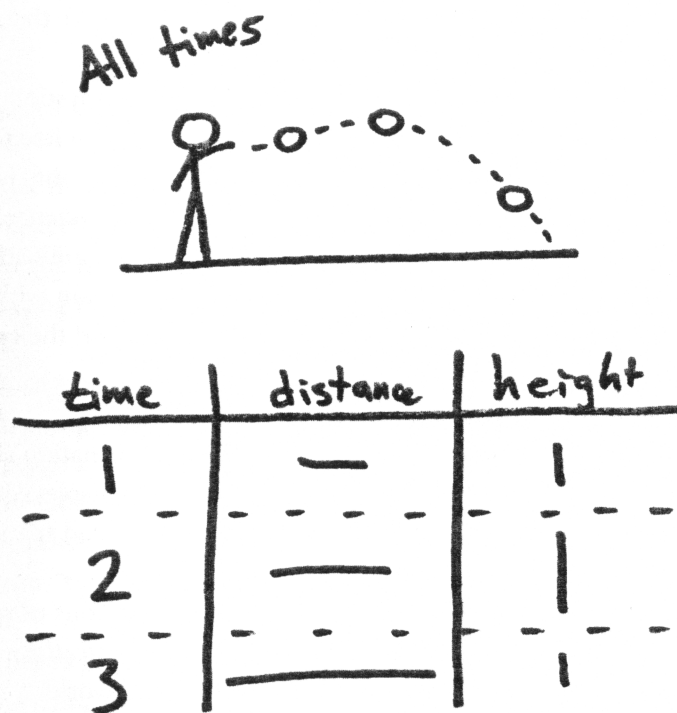 All times
time distance height
1
2
3